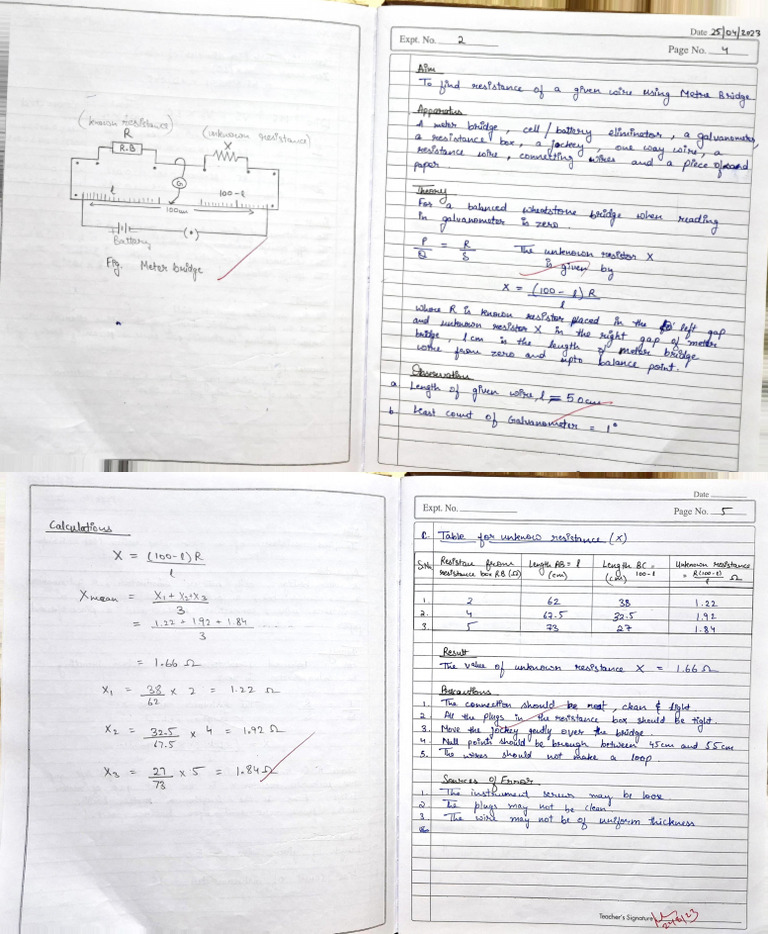 (known resistance)
R
R.B
(unknown resistance)
X
G
l
100-l
100cm
Battery
Fig. Meter bridge
Date 25/04/2023
Expt. No. 2
Page No. 4
Aim
To find resistance of a given wire using Metre Bridge
Apparatus
A meter bridge, cell / battery eliminator, a galvanometer,
a resistance box, a jockey, one way wire, a
resistance wire, connecting wires and a piece of sand
paper.
Theory
For a balanced wheatstone bridge when reading
in galvanometer is zero.
P/Q = R/S The unknown resistor X
is given by
X = (100 - l) R / l
where R is known resistor placed in the left gap
and unknown resistor X in the right gap of meter
bridge, l cm is the length of meter bridge
wire from zero end upto balance point.
Observation
a Length of given wire, l = 50cm
b Least count of Galvanometer = 1°
Calculations
X = (100-l) R / l
X mean = X1 + X2 + X3 / 3
= 1.22 + 1.92 + 1.84 / 3
= 1.66 Ω
X1 = 38/62 x 2 = 1.22 Ω
X2 = 32.5/67.5 x 4 = 1.92 Ω
X3 = 27/73 x 5 = 1.84 Ω
Date
Expt. No.
Page No. 5
C. Table for unknow resistance (X)
S.No. Resistance from resistance box RB (Ω) Length AB = l (cm) Length BC = 100-l (cm) Unknown resistance = R(100-l)/l Ω
1. 2 62 38 1.22
2. 4 67.5 32.5 1.92
3. 5 73 27 1.84
Result
The value of unknown resistance X = 1.66 Ω
Precautions
1. The connection should be neat, clean & tight.
2. All the plugs in the resistance box should be tight.
3. Move the jockey gently over the bridge.
4. Null points should be brough between 45cm and 55cm
5. The wires should not make a loop.
Sources of Error
1. The instrument screws may be loose
2 The plugs may not be clean
3 The wire may not be of uniform thickness
Teacher's Signature